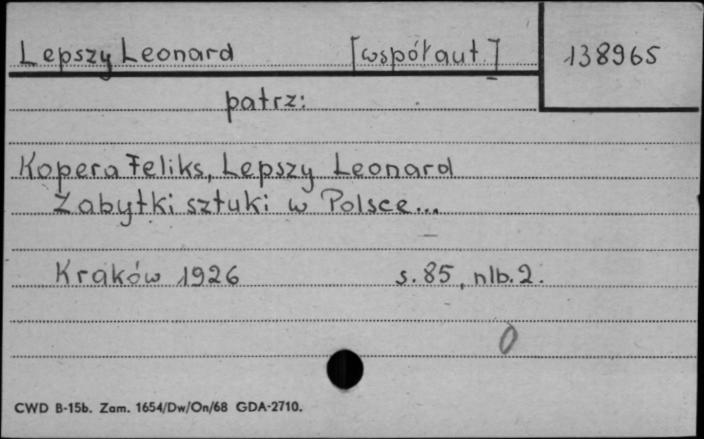 Lepszy Leonard [współaut.] 138965
patrz:
Kopera Feliks, Lepszy Leonard
Zabytki sztuki w Polsce...
Kraków 1926 s. 85, nlb. 2.
0
CWD B-15b. Zam. 1654/Dw/On/68 GDA-2710.